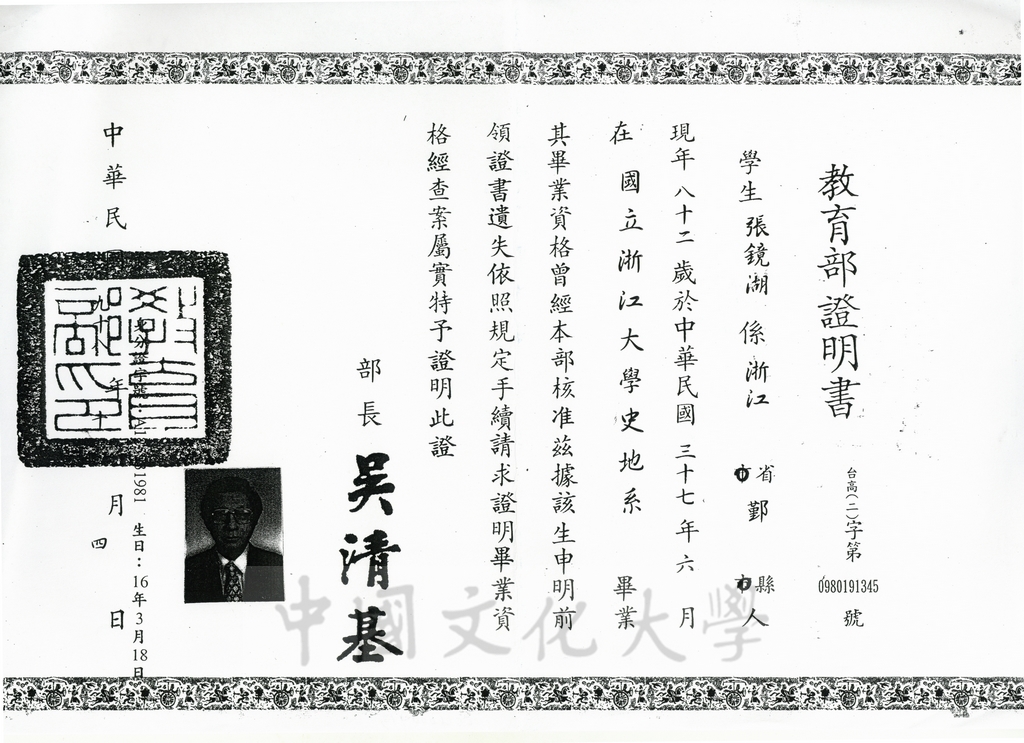 教育部證明書
台高(二)字第 0980191345 號
學生張鏡湖 係浙江 省市 鄞 縣市 人
現年八十二歲於中華民國三十七年六月
在國立浙江大學史地系 畢業
其畢業資格曾經本部核准茲據該生申明前
領證書遺失依照規定手續請求證明畢業資
格經查案屬實特予證明此證
部長 吳清基
生日：16年3月18日
中華民 年 月四日
中國文化大學